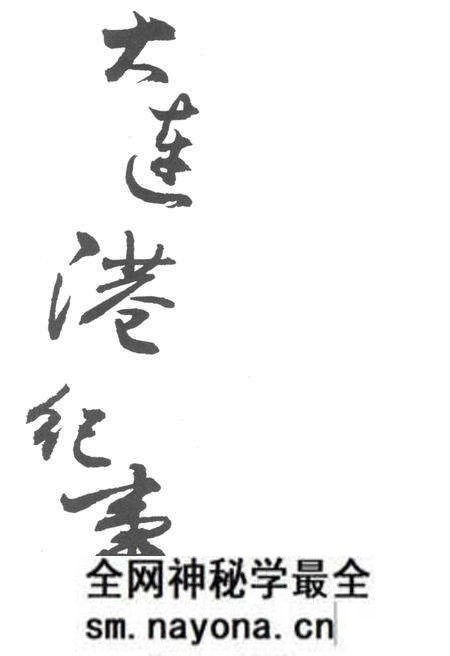 大连港纪事
全网神秘学最全
sm.nayona.cn